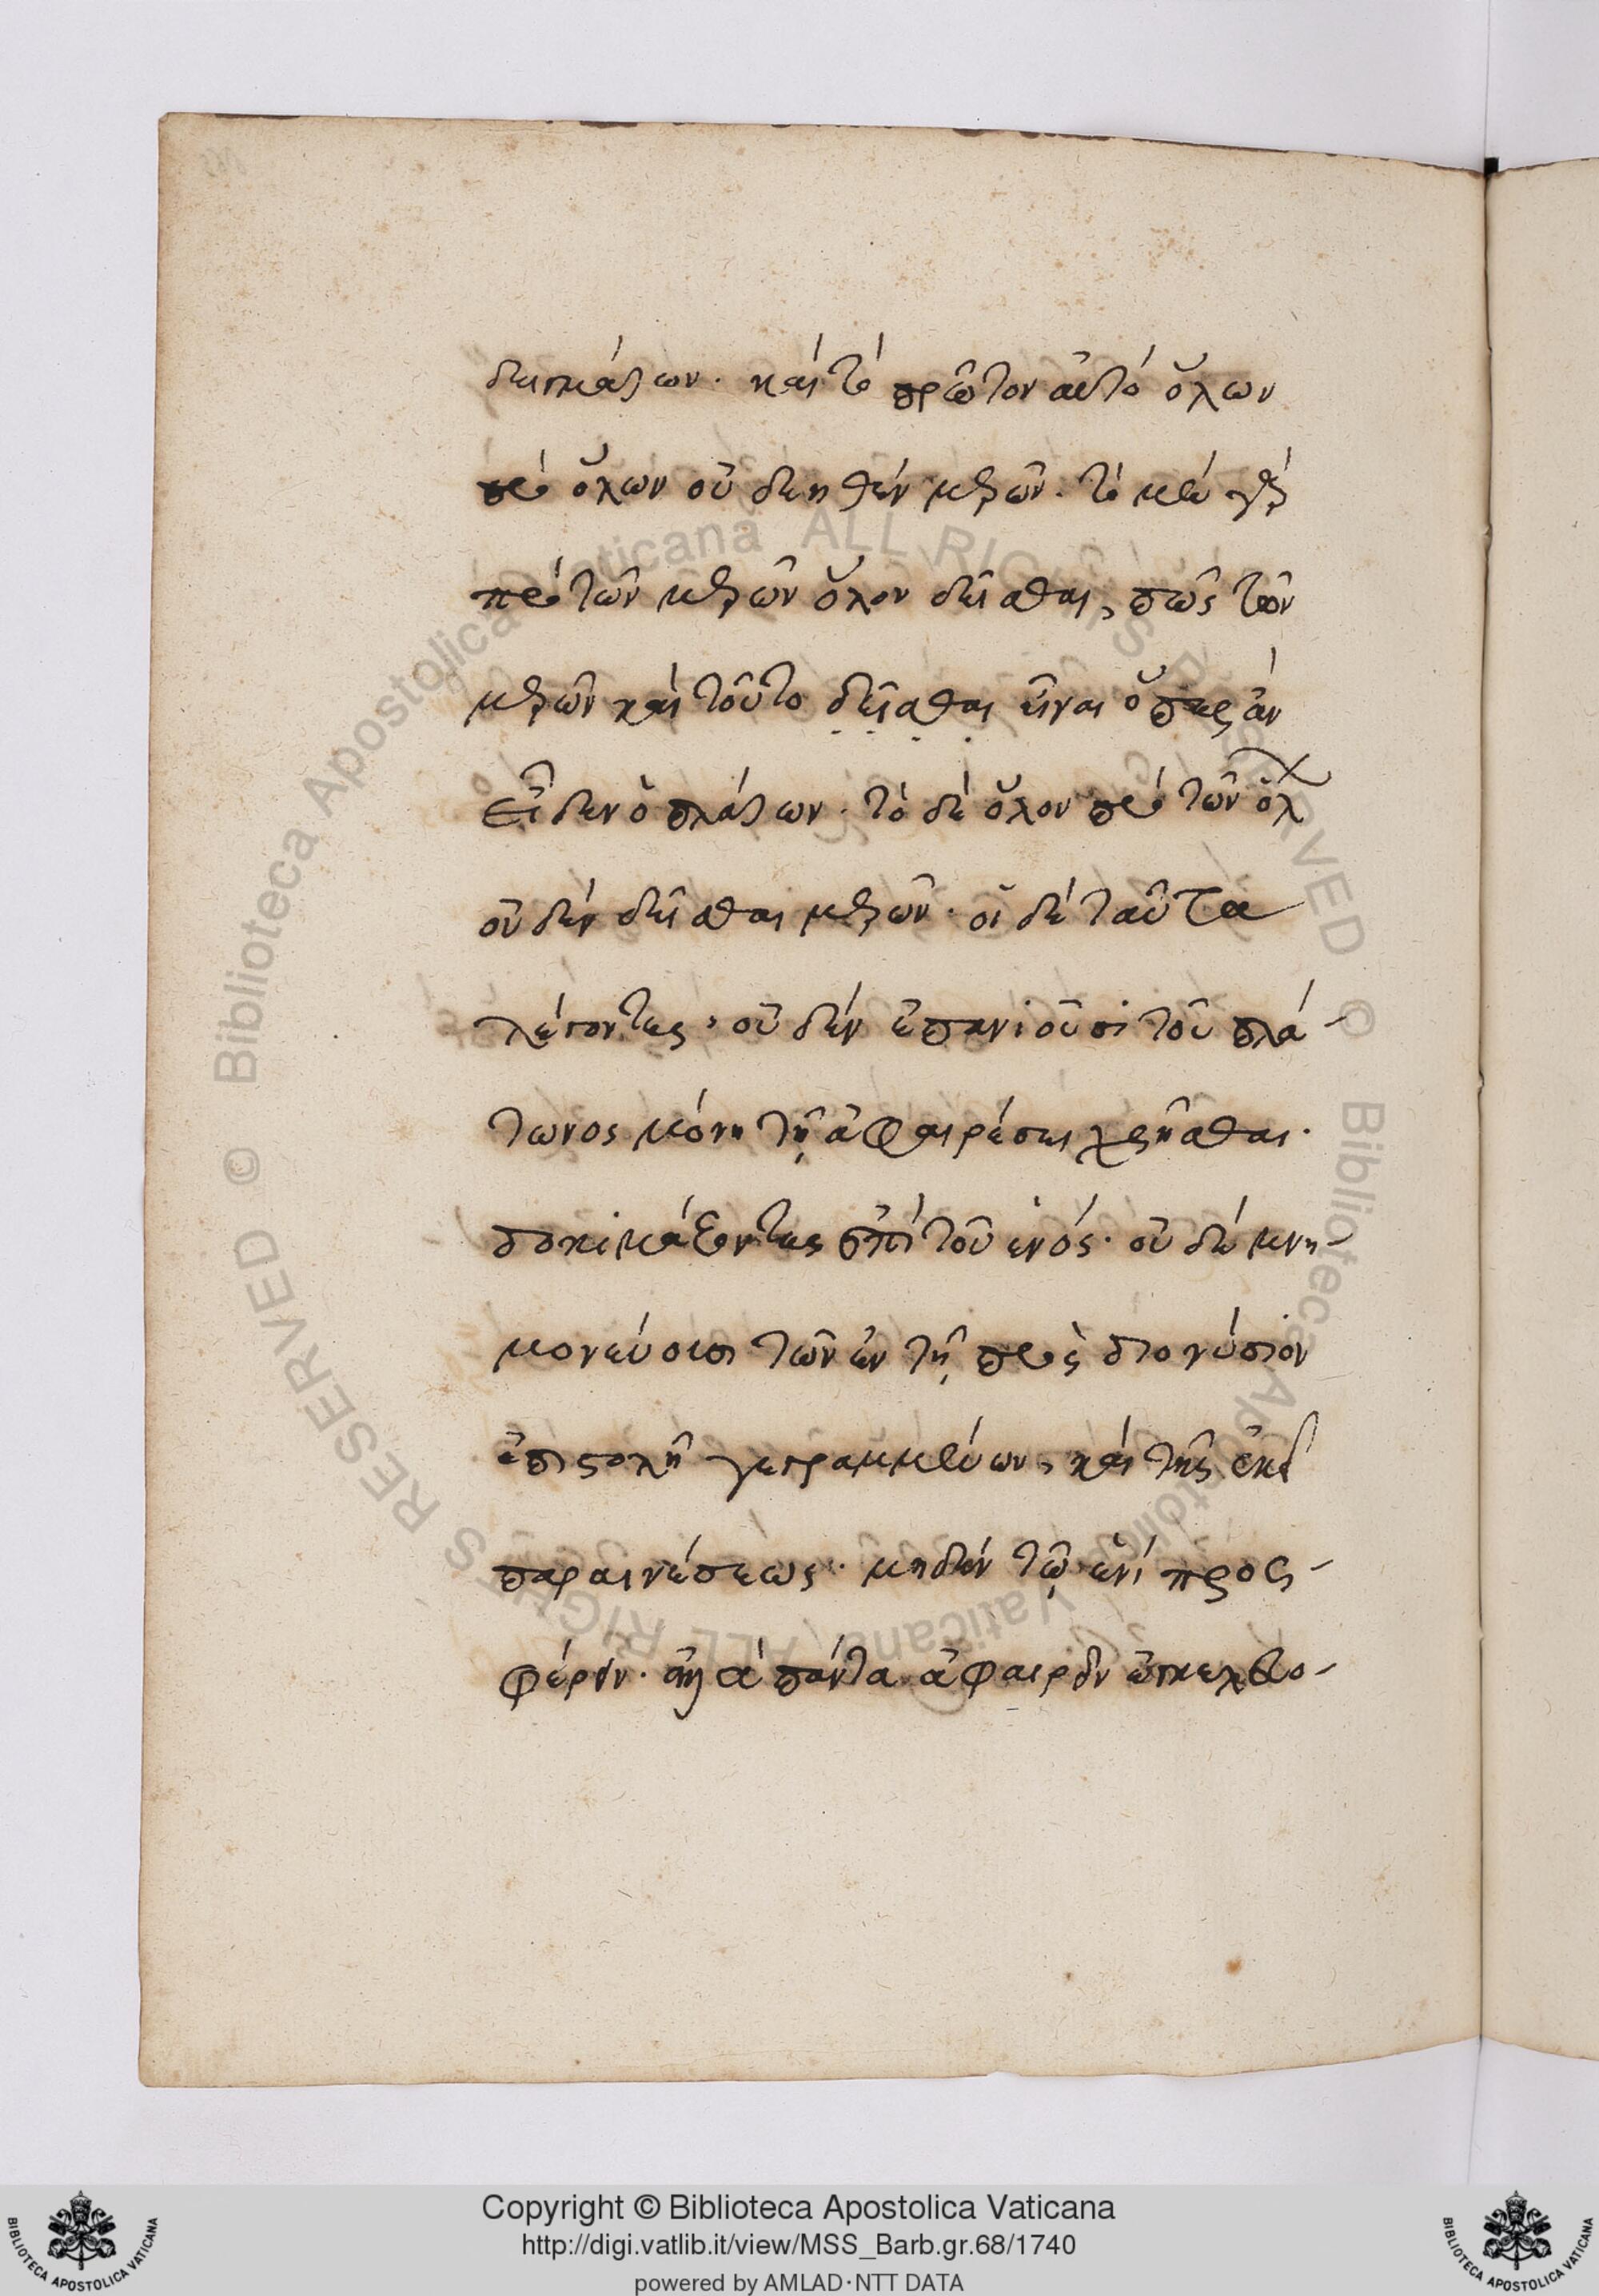 δεικτάζων. καὶ τὸ πρῶτον αὐτὸ ὅλων
πρὸ ὅλων οὐ δεηθὲν μερῶν. τὸ μὲν γὰρ
πρὸ τῶν μερῶν ὅλον δεῖσθαι πῶς τῶν
μερῶν καὶ τοῦτο δεῖσθαι εἶναι ὅπερ ἂν
εἶδεν ὁ πλάτων. τὸ δὲ ὅλον πρὸ τῶν ὅλ
οὐδὲν δεῖσθαι μερῶν. οἱ δὲ ταῦτα
λέγοντες, οὐδὲν ἐπανιοῦσι τοῦ πλά-
τωνος μόνῃ τῇ ἀφαιρέσει χρῆσθαι.
δοκιμάζοντες ἐπὶ τοῦ ἑνός. οὐδὲ μνη-
μονεύουσι τῶν ἐν τῇ πρὸς διονύσιον
ἐπιστολῇ γεγραμμένων, καὶ τῆς ἐκεῖ
παραινέσεως. μηδὲν τῷ ἑνὶ προσ-
φέρειν. ἀλλὰ πάντα ἀφαιρεῖν
Copyright © Biblioteca Apostolica Vaticana
http://digi.vatlib.it/view/MSS_Barb.gr.68/1740
powered by AMLAD·NTT DATA